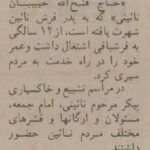 «حاج فتح‌الله حبیبیان
نائینی» که به پدر فرش نائین
شهرت یافته است، از ۱۲ سالگی
به فرشبافی اشتغال داشت وعمر
خود را در راه خدمت به مردم
سپری کرد.
در مراسم تشییع و خاکسپاری
پیکر مرحوم نائینی، امام جمعه،
مسئولان و ارگانها و قشرهای
مختلف مردم نائین حضور
داشتند